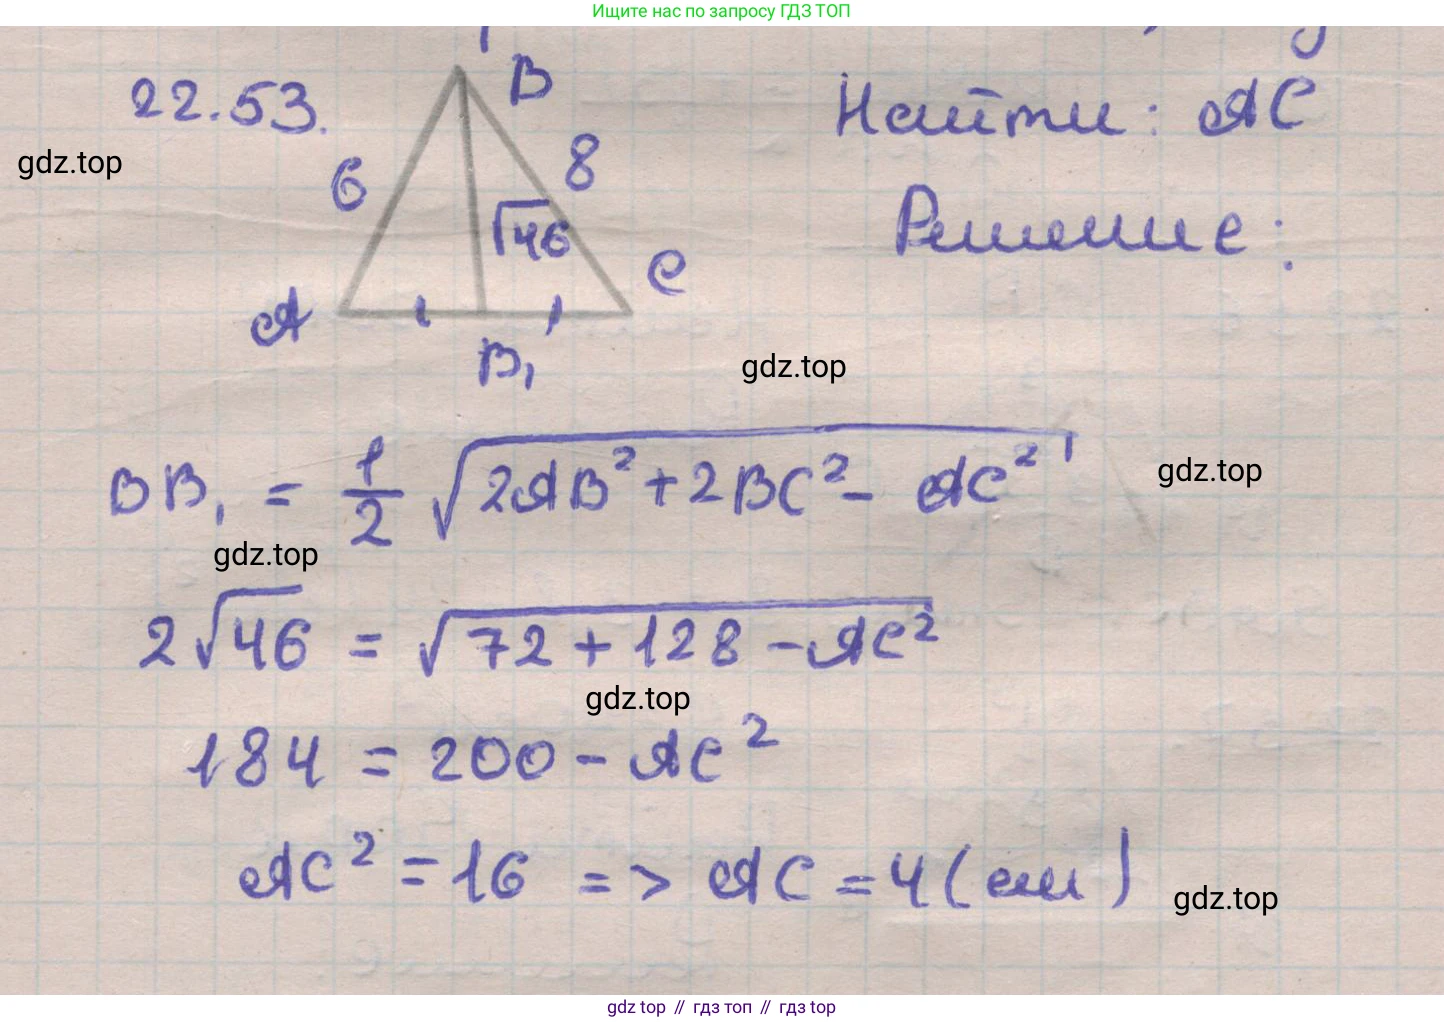 Ищите нас по запросу ГДЗ ТОП
22.53.
B
Найти: AC
gdz.top
6
8
√46
Решение:
A
C
B₁
gdz.top
BB₁ = 1/2 √(2AB² + 2BC² - AC²)
gdz.top
gdz.top
2√46 = √(72 + 128 - AC²)
gdz.top
184 = 200 - AC²
AC² = 16 => AC = 4 (см)
gdz.top
gdz top // гдз топ // гдз top